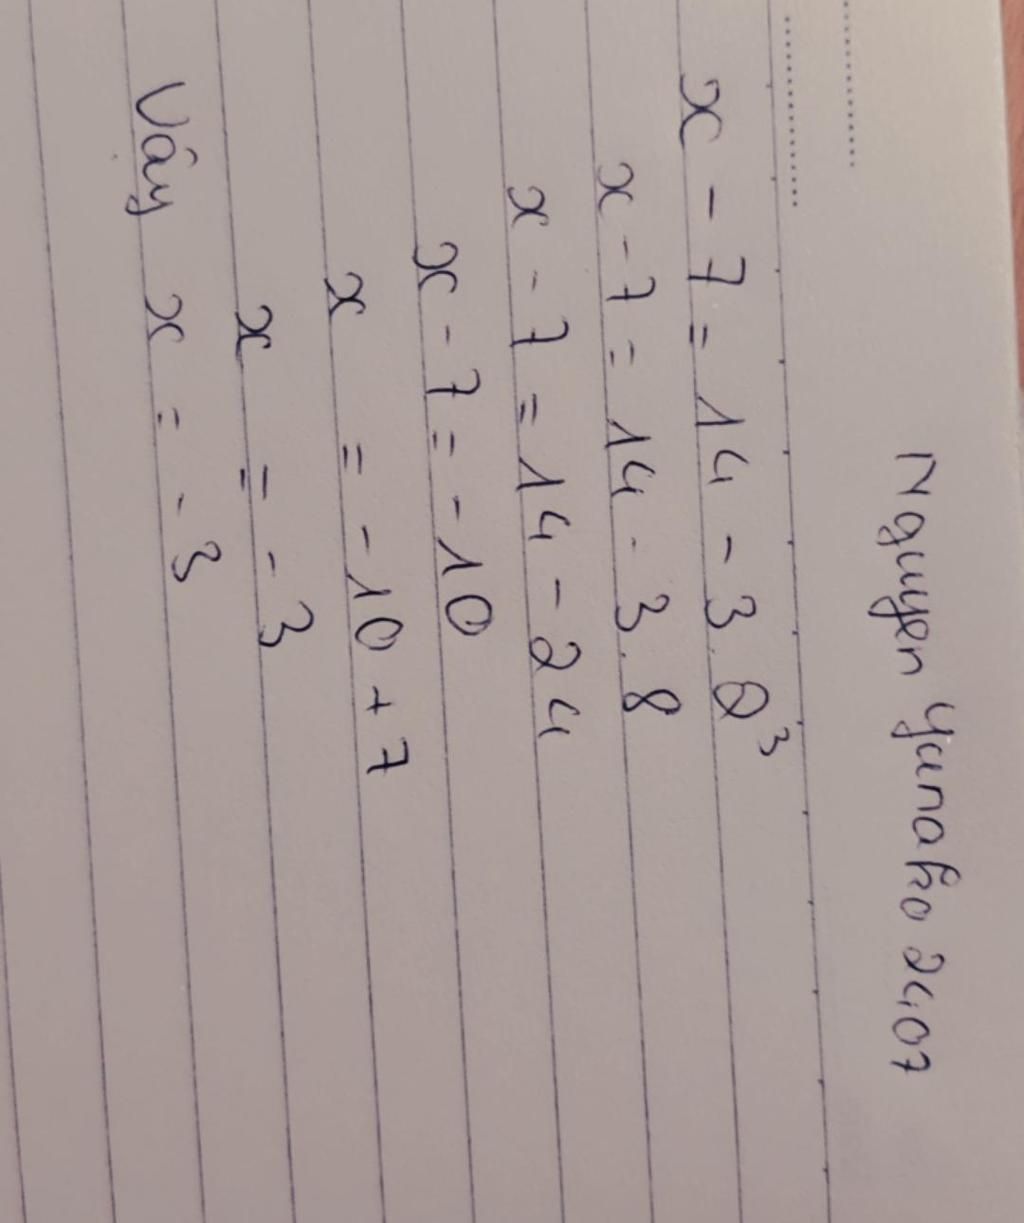 Nguyen Yunako 2407
x - 7 = 14 - 3.2³
x - 7 = 14 - 3.8
x - 7 = 14 - 24
x - 7 = -10
x = -10 + 7
x = -3
Vây x = -3